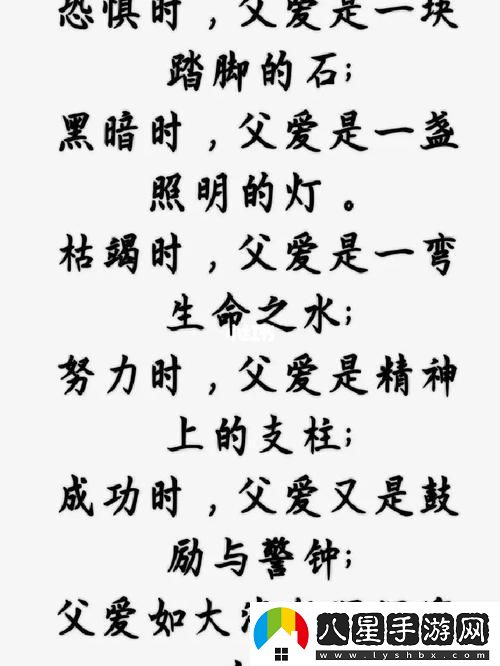 恐惧时，父爱是一块
踏脚的石；
黑暗时，父爱是一盏
照明的灯。
枯竭时，父爱是一弯
生命之水；
努力时，父爱是精神
上的支柱；
成功时，父爱又是鼓
励与警钟；
父爱如大
八星手游网
www.lyshbx.com